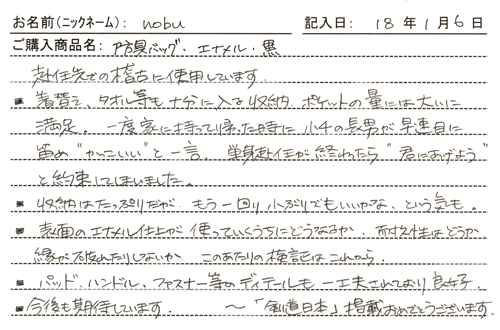 お名前(ニックネーム): nobu 記入日: 18年1月6日
ご購入商品名: 防具バッグ・エナメル・黒
赴任先での稽古に使用しています。
■着替え、タオル等も十分に入る収納、ポケットの量には大いに
満足。一度家に持って帰った時に小4の長男が早速目に
留め"かっこいい"と一言。単身赴任が終わったら"君にあげよう"
と約束してしまいました。
■収納はたっぷりだが、もう一回り小ぶりでもいいかな、という気も。
■表面のエナメル仕上が使っていくうちにどうなるか、耐久性はどうか、
縁が破れたりしないか、このあたりの検証はこれから。
■パッド、ハンドル、ファスナー等のディテールも一工夫されており良好。
■今後も期待しています。 〜「剣道日本」掲載おめでとうございます